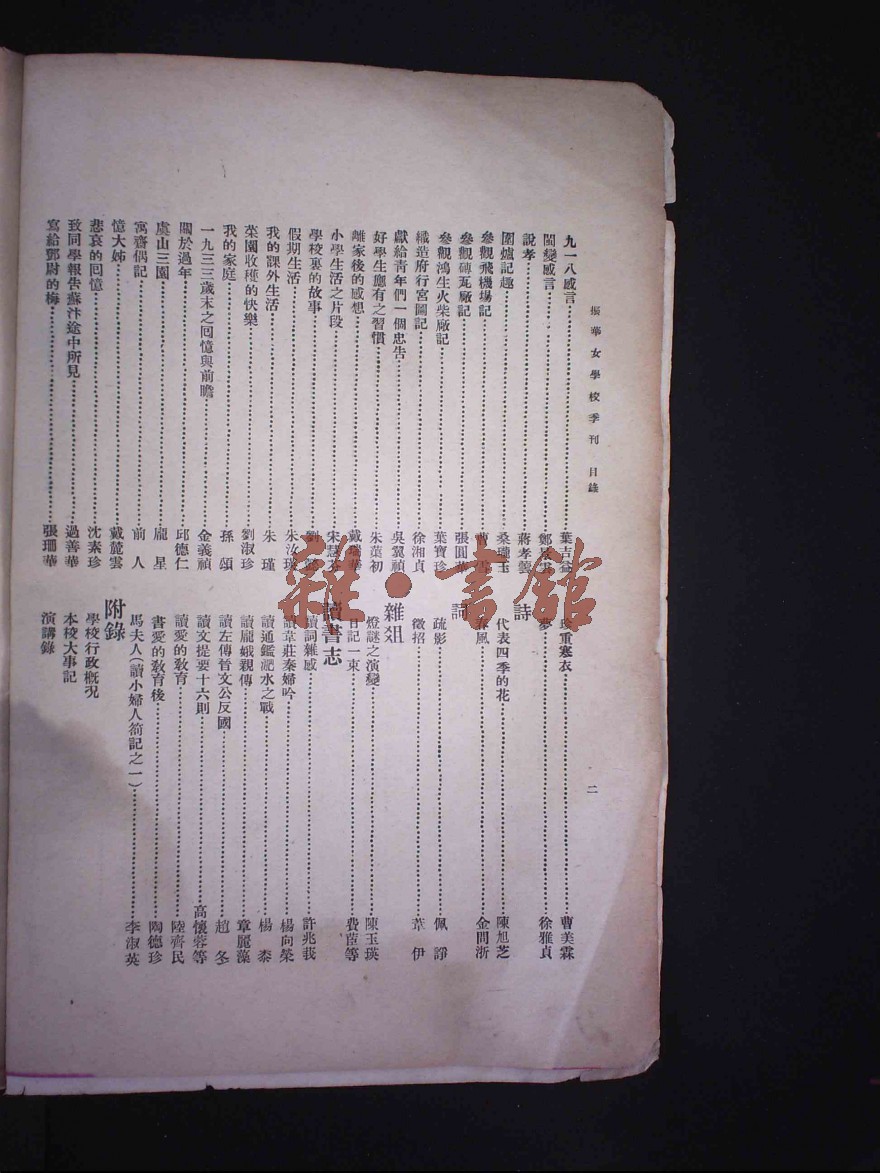 振華女學校季刊 目錄
二
九一八感言……葉吉益
閩變感言……鄭
說孝……蔣孝雲
圍爐記趣……桑瓏玉
參觀飛機場記……曹
參觀磚瓦廠記……張圓華
參觀鴻生火柴廠記……葉寶珍
織造府行宮圖記……徐湘貞
獻給青年們一個忠告……吳翼禎
好學生應有之習慣……朱蘊初
離家後的感想……戴瑞華
小學生活之片段……宋慧
學校裏的故事……劉
假期生活……朱汝
我的課外生活……朱瑾
菜園收種的快樂……劉淑珍
我的家庭……孫頌
一九三三歲末之回憶與前瞻……金義禎
關於過年……邱德仁
虞山三園……龐星
寓齋偶記……前人
憶大姊……戴麓雲
悲哀的回憶……沈素珍
致同學報告蘇汴途中所見……過善華
寫給鄧尉的梅……張珊華
珍重寒衣……曹美霖
詩
夢……徐雅貞
代表四季的花……陳旭芝
春風……金問浙
詞
疏影……佩諍
徵招……葦伊
雜俎
燈謎之演變……陳玉瑛
日記一束……費茞等
讀書志
讀詞雜感……許兆莪
讀韋莊秦婦吟……楊向榮
讀通鑑淝水之戰……楊柰
讀龐娥親傳……章麗藻
讀左傳晉文公反國……趙冬
讀文提要十六則……高懷蓉等
讀愛的教育……陸齊民
書愛的教育後……陶德珍
馬夫人(讀小婦人箚記之一)……李淑英
附錄
學校行政概況
本校大事記
演講錄
雜·書館